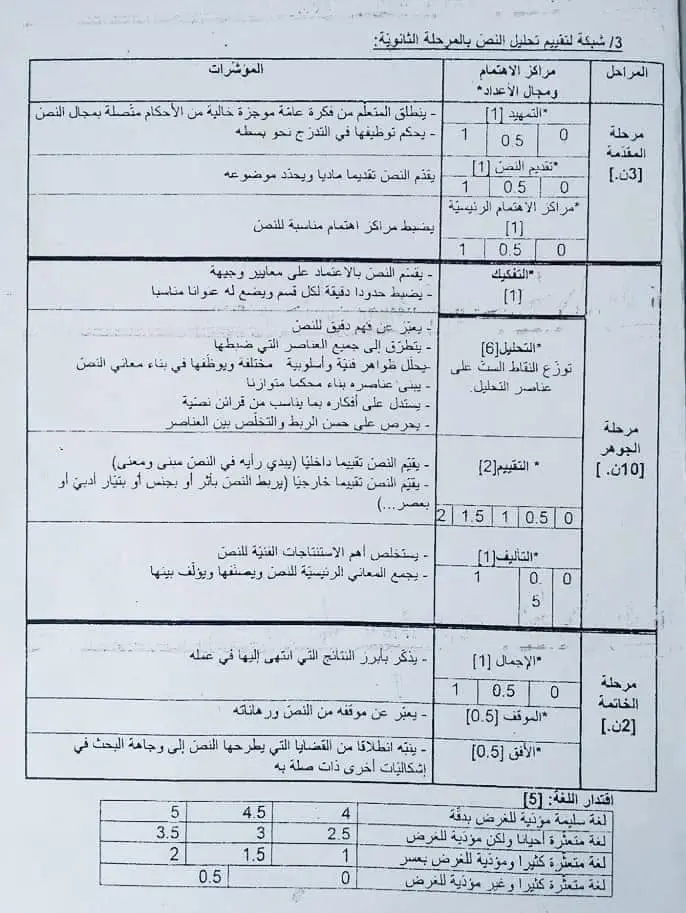 3/ شبكة لتقييم تحليل النصّ بالمرحلة الثانويّة:
المراحل
مراكز الاهتمام
ومجال الأعداد*
المؤشرات
مرحلة
المقدّمة
[3ن.]
*التمهيد [1]
0 0.5 1
- ينطلق المتعلّم من فكرة عامّة موجزة خالية من الأحكام متّصلة بمجال النصّ
- يحكم توظيفها في التدرّج نحو بسطه
*تقديم النصّ [1]
0 0.5 1
يقدّم النصّ تقديما ماديا ويحدّد موضوعه
*مراكز الاهتمام الرئيسيّة
[1]
0 0.5 1
يضبط مراكز اهتمام مناسبة للنصّ
مرحلة
الجوهر
[10ن.]
*التفكيك
[1]
- يقسّم النصّ بالاعتماد على معايير وجيهة
- يضبط حدودا دقيقة لكل قسم ويضع له عنوانا مناسبا
*التحليل[6]
توزّع النقاط الستّ على
عناصر التحليل.
- يعبّر عن فهم دقيق للنصّ
- يتطرّق إلى جميع العناصر التي ضبطها
-يحلّل ظواهر فنيّة وأسلوبية مختلفة ويوظّفها في بناء معاني النصّ
- يبني عناصره بناء محكما متوازنا
- يستدل على أفكاره بما يناسب من قرائن نصيّة
- يحرص على حسن الربط والتخلّص بين العناصر
* التقييم[2]
0 0.5 1 1.5 2
- يقيّم النصّ تقييما داخليّا (يبدي رأيه في النصّ مبنى ومعنى)
- يقيّم النصّ تقييما خارجيّا (يربط النصّ بأثر أو بجنس أو بتيّار أدبيّ أو
بعصر...)
*التأليف[1]
0 0.5 1
- يستخلص أهم الاستنتاجات الفنيّة للنصّ
- يجمع المعاني الرئيسيّة للنصّ ويصنّفها ويؤلّف بينها
مرحلة
الخاتمة
[2ن.]
*الإجمال [1]
0 0.5 1
- يذكّر بأبرز النتائج التي انتهى إليها في عمله
*الموقف [0.5]
- يعبّر عن موقفه من النصّ ورهاناته
*الأفق [0.5]
- ينبّه انطلاقا من القضايا التي يطرحها النصّ إلى وجاهة البحث في
إشكاليّات أخرى ذات صلة به
اقتدار اللغة: [5]
لغة سليمة مؤدّية للغرض بدقّة 4 4.5 5
لغة متعثّرة أحيانا ولكن مؤدّية للغرض 2.5 3 3.5
لغة متعثّرة كثيرا ومؤدّية للغرض بعسر 1 1.5 2
لغة متعثّرة كثيرا وغير مؤدّية للغرض 0 0.5